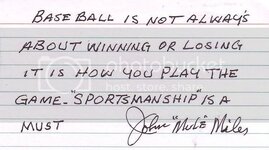 BASEBALL IS NOT ALWAYS
ABOUT WINNING OR LOSING
IT IS HOW YOU PLAY THE
GAME-"SPORTSMANSHIP" IS A
MUST John "Mule" Miles
photobucket